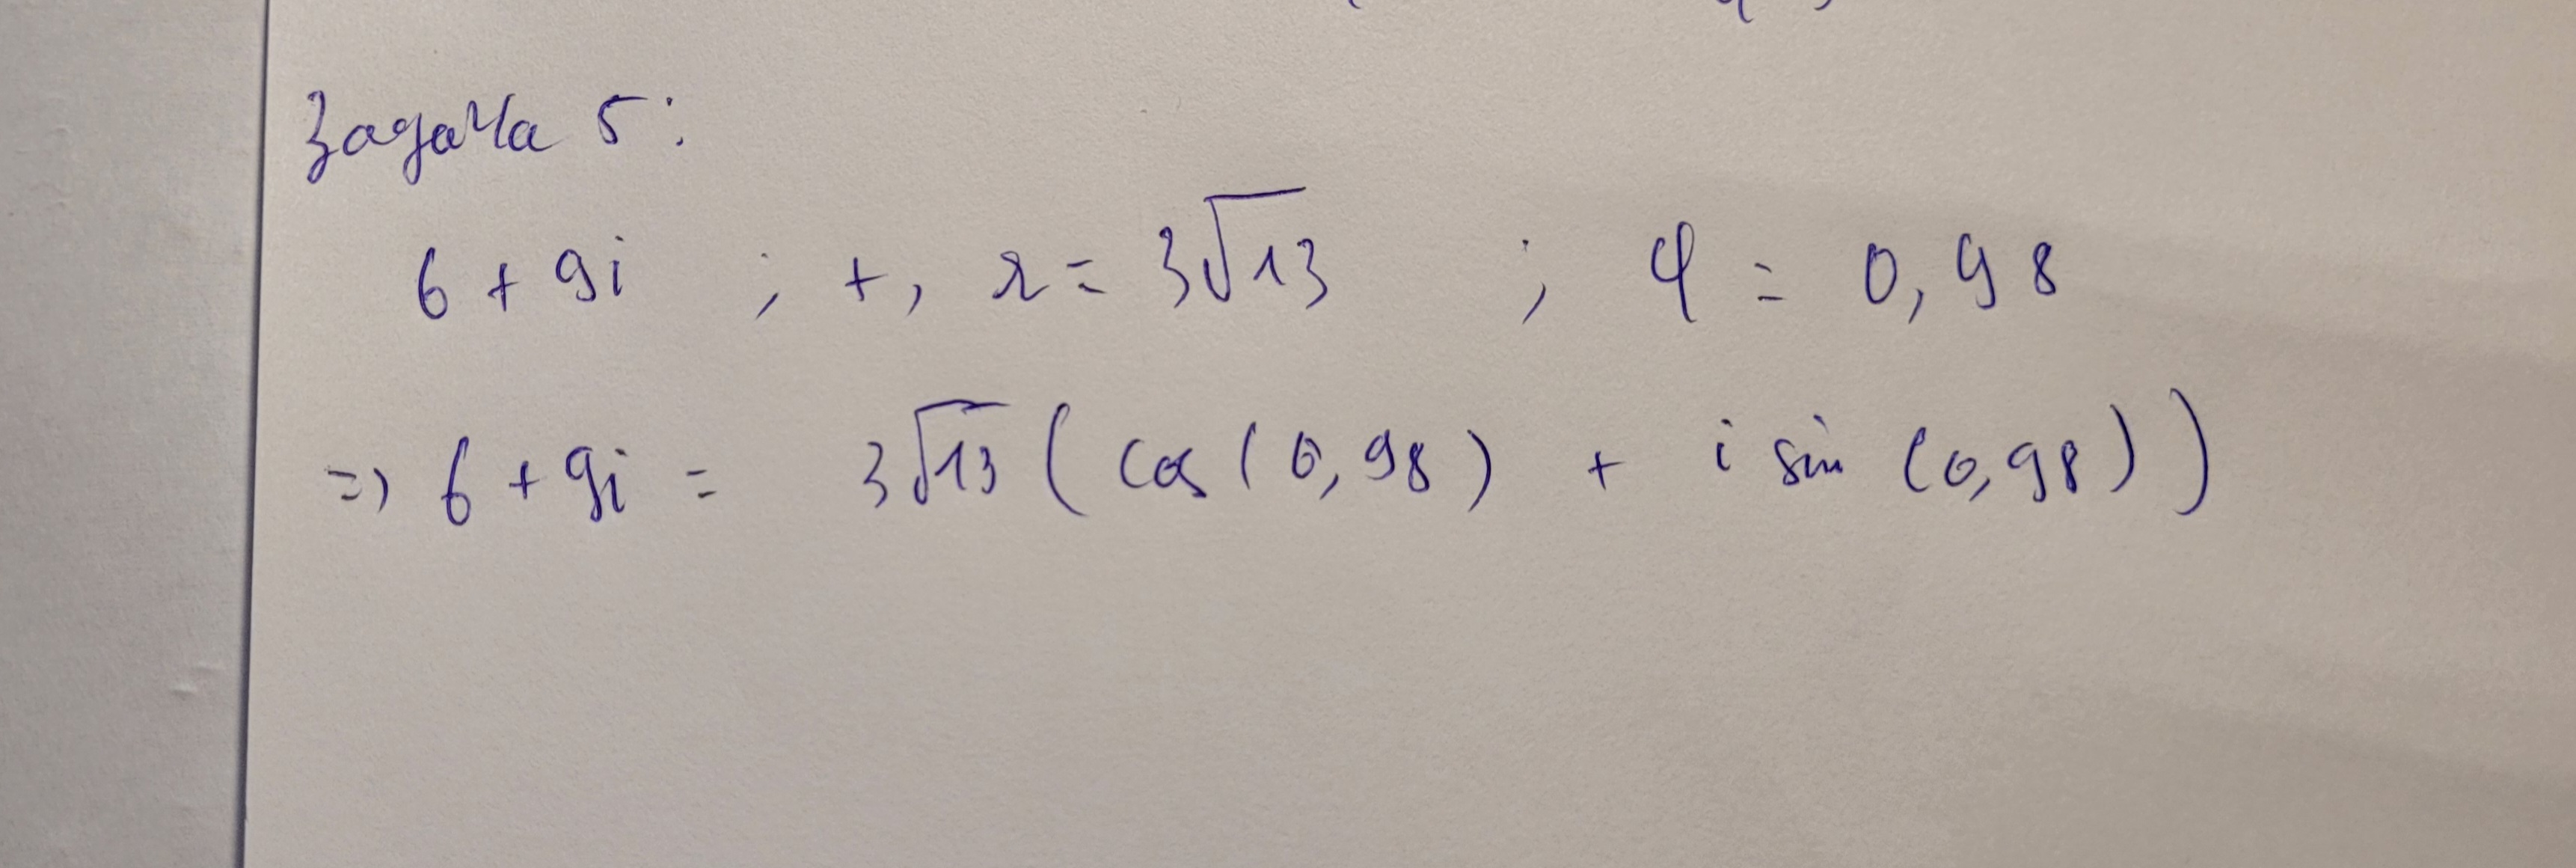 Задача 5:
6 + 9i ; +, r = 3√13 ; φ = 0,98
=> 6 + 9i = 3√13 ( cos ( 0,98 ) + i sin (0,98) )